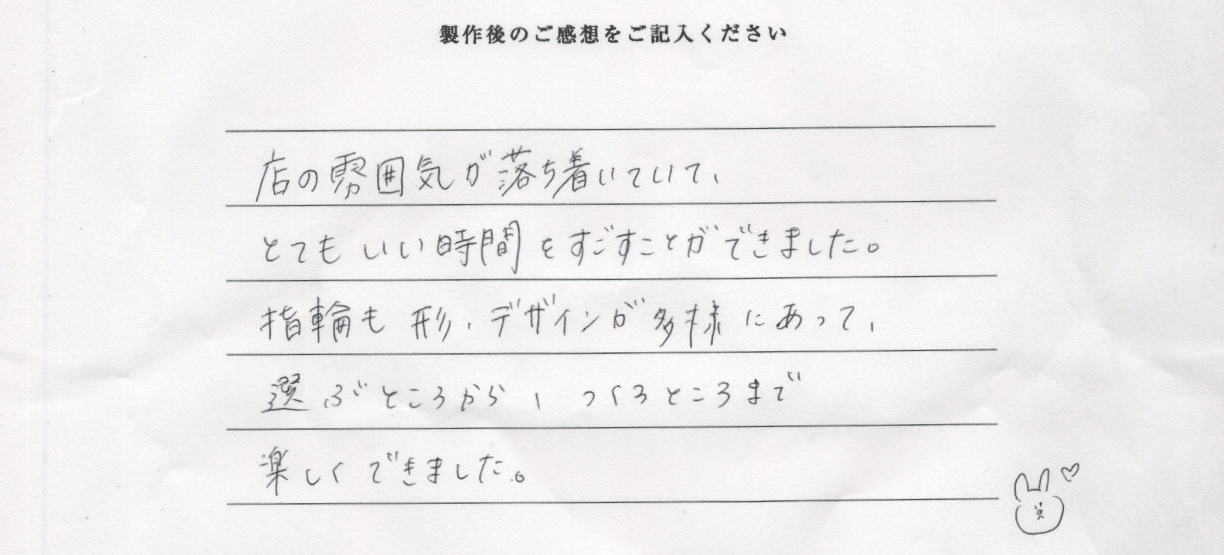 製作後のご感想をご記入ください
店の雰囲気が落ち着いていて、
とてもいい時間をすごすことができました。
指輪も形、デザインが多様にあって、
選ぶところから、つくるところまで
楽しくできました。